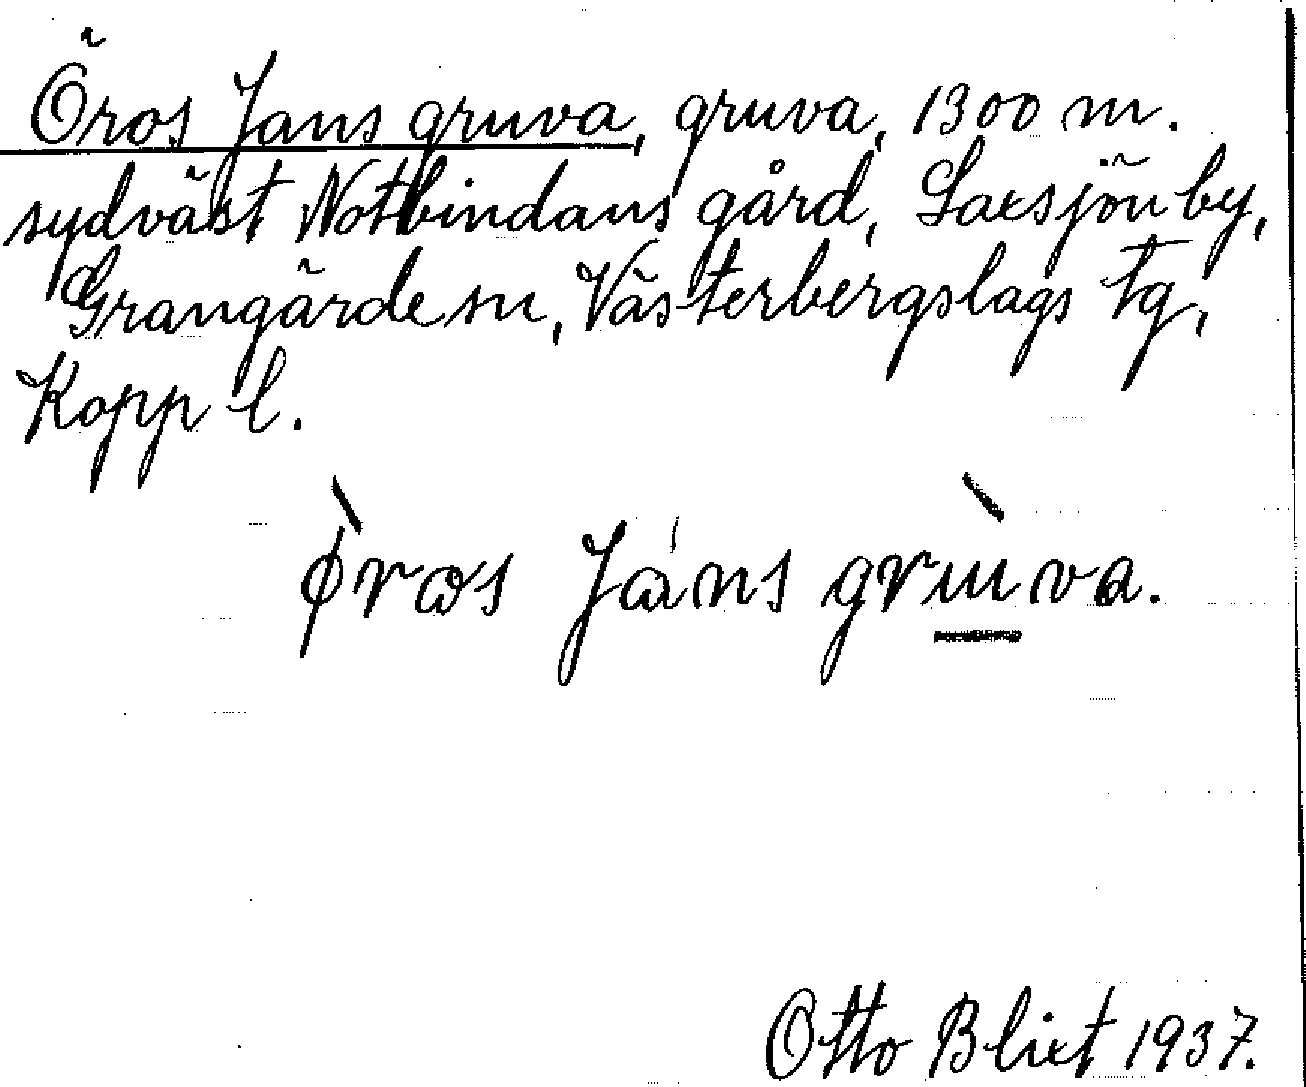 Öros Jans gruva, gruva, 1300 m.
sydväst Notbindans gård, Laxsjön by,
Grangärde sn, Västerbergslags Fg,
Kopp l.
ø̀ros Jáns grùva.
Otto Blixt 1937.